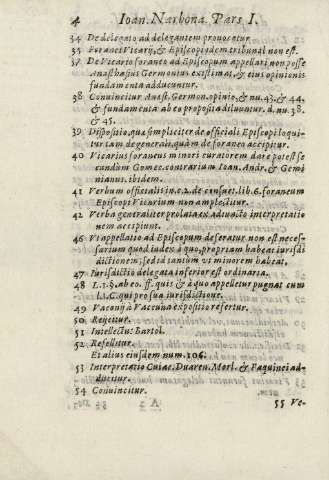 4 Ioan. Narbona. Pars I.
34 De delegato ad delegantem prouocatur.
35 Foranei Vicarij, & Episcopi idem tribunal non est.
37 De Vicario foraneo ad Episcopum appellari non posse
Anasthasius Germonius existimat, & eius opinionis
fundamenta adducuntur.
38 Conuincitur Anast. Germon. opinio, & nu. 43. & 44.
& fundamenta ab eo proposita diluuntur. d. nu. 38.
& 45.
39 Dispositio, quæ simpliciter de officiali Episcopi loqui-
tur tam de generali, quàm de foraneo accipitur.
40 Vicarius foraneus minori curatorem dare potest se
cundùm Gomez. contrarium Ioan. Andr. & Gemi
nianus. ibidem.
41 Verbum officialis in. c. 2. de consuet. lib. 6. foraneum
Episcopi Vicarium non amplectitur.
42 Verba generaliter prolata ex adiuncto interpretatio
nem accipiunt.
46 Vt appellatio ad Episcopum deferatur non est neces-
sarium quod iudex à quo, propriam habeat iurisdi
dictionem; sed etiam vt minorem habeat.
47 Iurisdictio delegata inferior est ordinaria.
48 L. 1. §. ab eo. ff. quis, & à quo appelletur pugnat cum
L. 1. C. qui pro sua iurisdictione.
49 Vaconij à Vaccuna expositio refertur.
50 Reijcitur.
51 Intellectus Bartol.
52 Refellitur.
Et alius eiusdem num. 106.
53 Interpretatio Cuiac. Duaren. Morl. & Faquinei ad-
ducitur.
54 Conuincitur.
55 Ve-